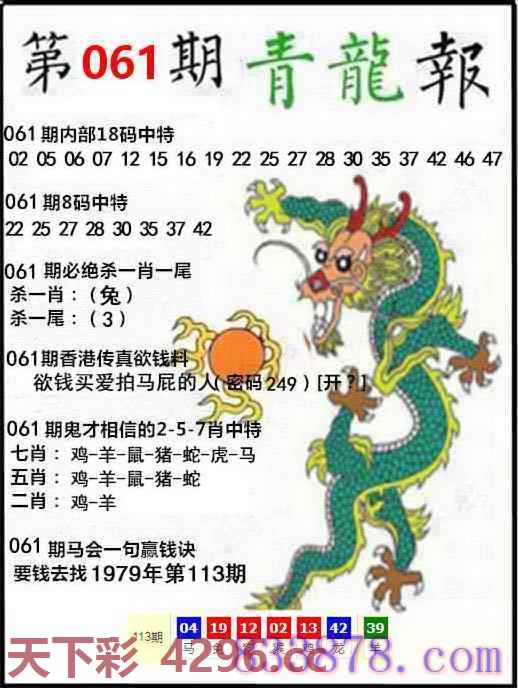 第061期青龍報
061期内部18码中特
02 05 06 07 12 15 16 19 22 25 27 28 30 35 37 42 46 47
061期8码中特
22 25 27 28 30 35 37 42
061期必绝杀一肖一尾
杀一肖：（兔）
杀一尾：（3）
061期香港传真欲钱料
欲钱买爱拍马屁的人（密码249）[开？]
061期鬼才相信的2-5-7肖中特
七肖：鸡-羊-鼠-猪-蛇-虎-马
五肖：鸡-羊-鼠-猪-蛇
二肖：鸡-羊
061期马会一句赢钱诀
要钱去找1979年第113期
113期 04 19 12 02 13 42 39
马 兔 猴 鸡 龙 羊
天下彩 4296.cc